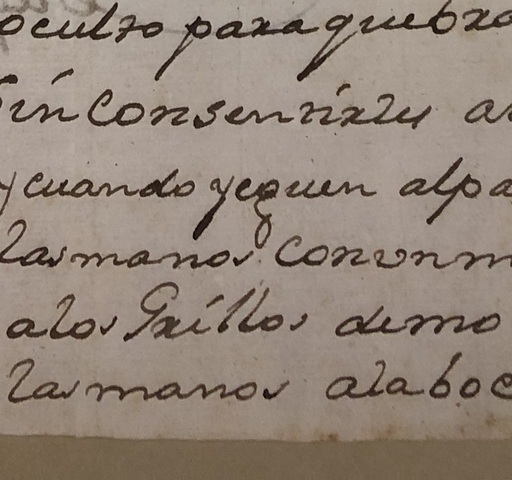 oculto para quebra
sin consentirles a
y cuando yeguen alpa
las manos con un m
a los Grillos demo
las manos ala boc